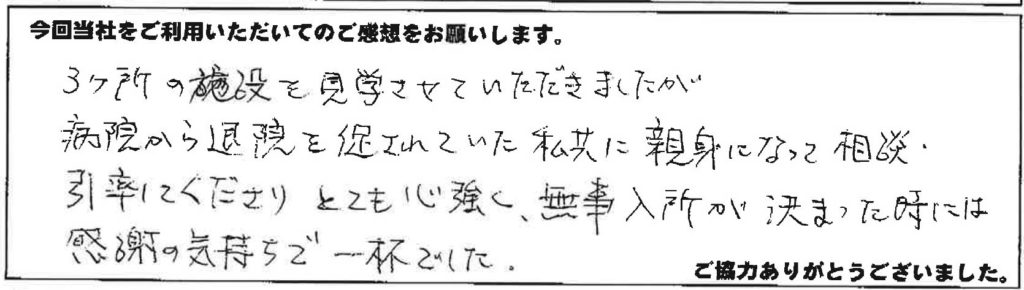 今回当社をご利用いただいてのご感想をお願いします。
3ヶ所の施設を見学させていただきましたが
病院から退院を促されていた私共に親身になって相談・
引率してくださり とても心強く、無事入所が決まった時には
感謝の気持ちで一杯でした.
ご協力ありがとうございました。